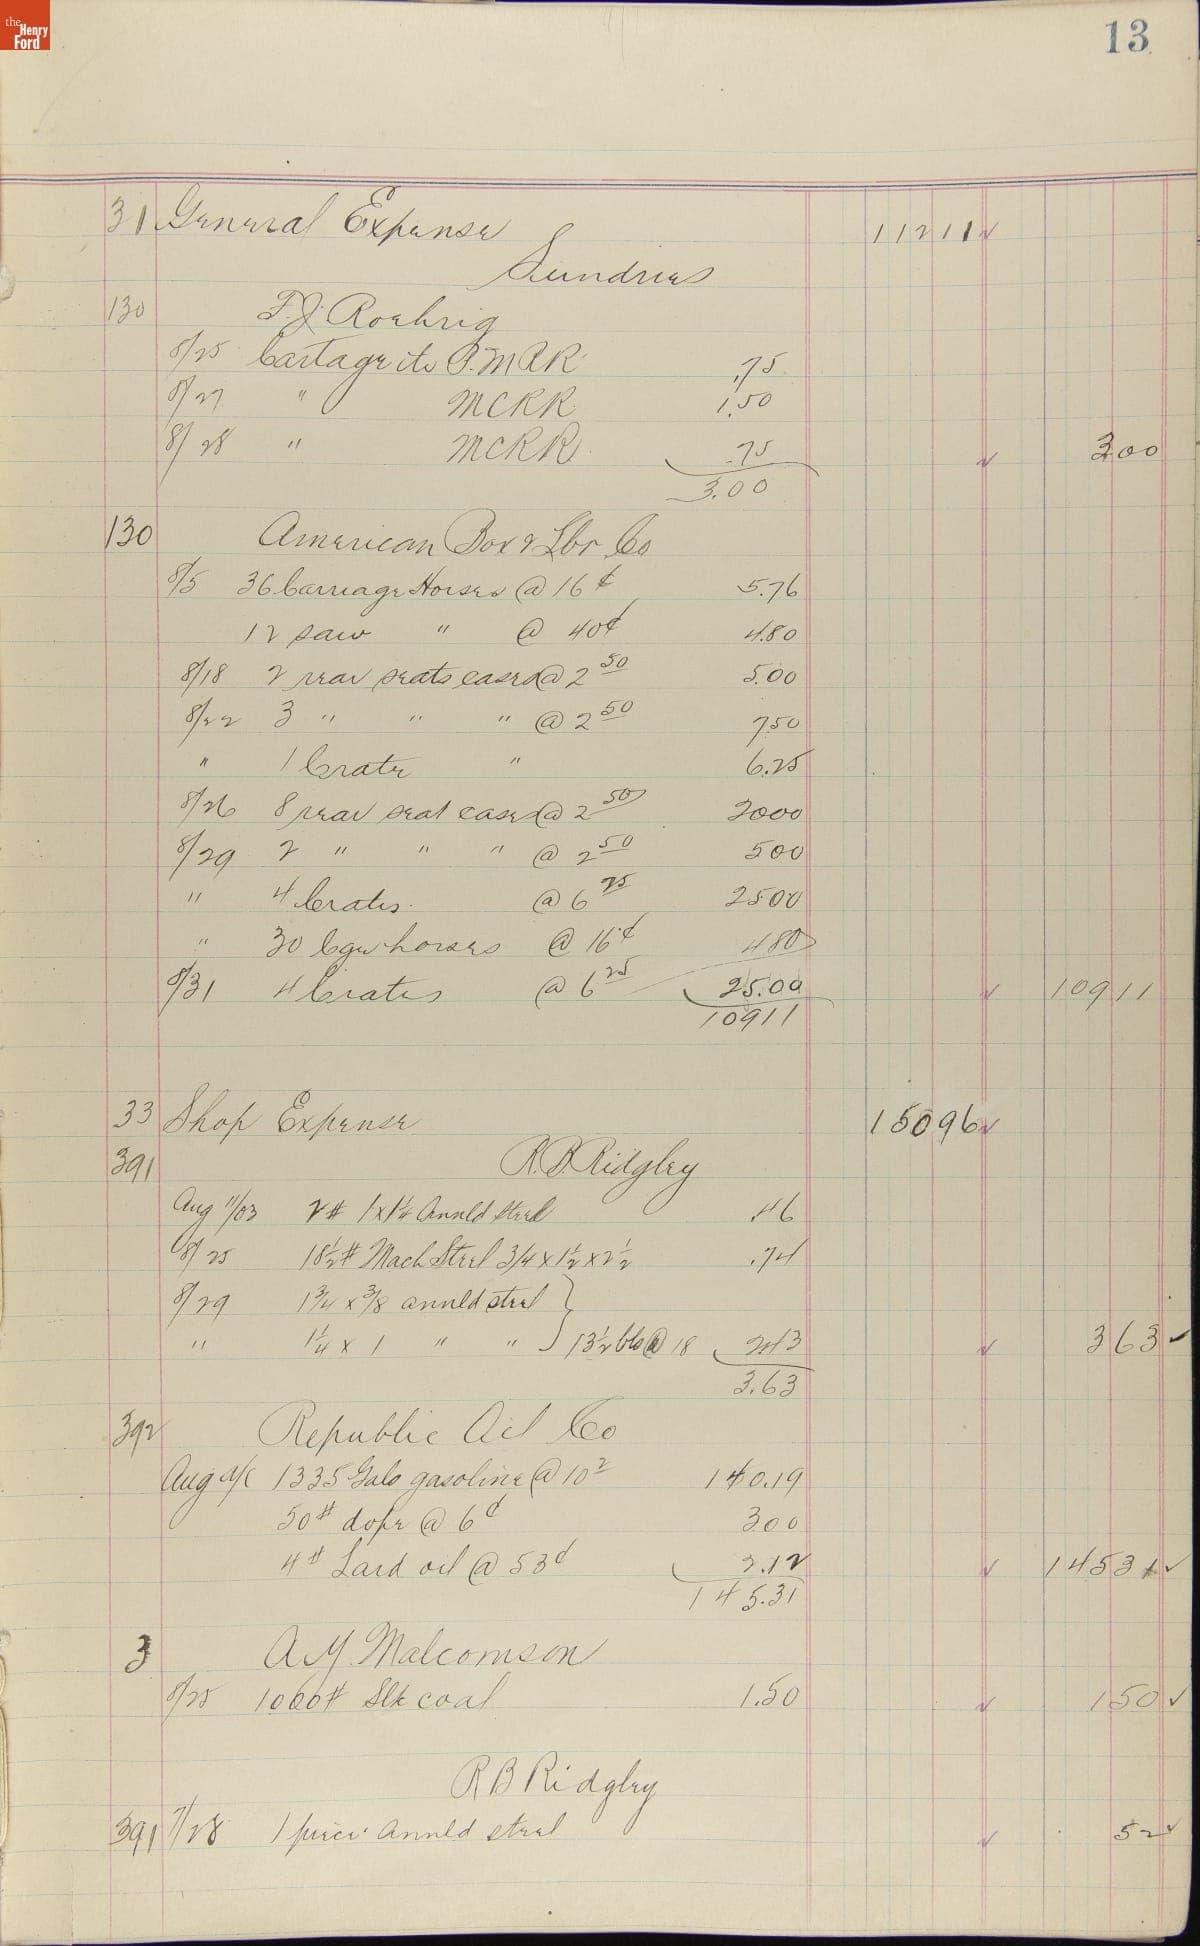 the Henry Ford
13
31 General Expense 11211
Sundries
130 F.J. Roehrig
8/25 Cartage to P.M.R.R. .75
8/27 " MCRR 1.50
8/28 " MCRR .75 300
3.00
130 American Box & Lbr Co
8/5 36 Carriage Horses @ 16¢ 5.76
12 saw " @ 40¢ 4.80
8/18 2 rear seats cases @ 2 50 5.00
8/22 3 " " " @ 2 50 750
" 1 Crate " 6.25
8/26 8 rear seat cases @ 2 50 2000
8/29 2 " " " @ 2 50 500
" 4 Crates @ 6 25 2500
" 30 Cge horses @ 16¢ 480
8/31 4 Crates @ 6 25 25.00 10911
10911
33 Shop Expense 15096
391 R.B. Ridgley
Aug 11/03 2# 1x1¼ Annld Steel .46
8/25 18½# Mach Steel 3/4 x 1½ x 2½ .74
8/29 1¾ x ⅜ annld steel
" 1¼ x 1 " " 13½ lbs @ 18 243 363
3.63
392 Republic Oil Co
Aug a/c 1335 Gals gasoline @ 10 2 140.19
50# dope @ 6¢ 300
4# Lard oil @ 53¢ 2.12 14531
145.31
3 A.Y. Malcomson
8/25 1000# Slk coal 1.50 150
R B Ridgley
391 7/28 1 piece annld steel 52